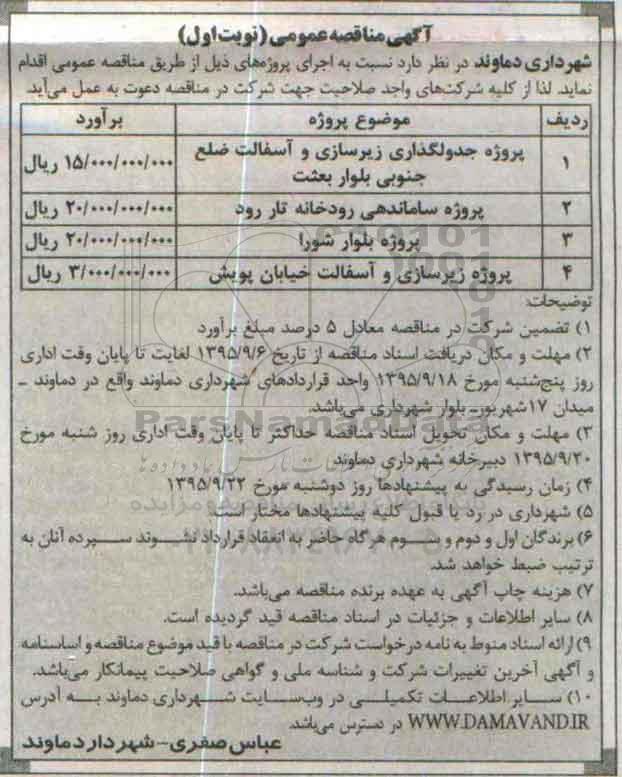 آگهی مناقصه عمومی (نوبت اول)
شهرداری دماوند در نظر دارد نسبت به اجرای پروژه‌های ذیل از طریق مناقصه عمومی اقدام
نماید. لذا از کلیه شرکت‌های واجد صلاحیت جهت شرکت در مناقصه دعوت به عمل می‌آید.
ردیف موضوع پروژه برآورد
۱ پروژه جدولگذاری زیرسازی و آسفالت ضلع جنوبی بلوار بعثت ۱۵/۰۰۰/۰۰۰/۰۰۰ ریال
۲ پروژه ساماندهی رودخانه تار رود ۲۰/۰۰۰/۰۰۰/۰۰۰ ریال
۳ پروژه بلوار شورا ۲۰/۰۰۰/۰۰۰/۰۰۰ ریال
۴ پروژه زیرسازی و آسفالت خیابان پویش ۳/۰۰۰/۰۰۰/۰۰۰ ریال
توضیحات:
۱) تضمین شرکت در مناقصه معادل ۵ درصد مبلغ برآورد
۲) مهلت و مکان دریافت اسناد مناقصه از تاریخ ۱۳۹۵/۹/۶ لغایت تا پایان وقت اداری
روز پنج‌شنبه مورخ ۱۳۹۵/۹/۱۸ واحد قراردادهای شهرداری دماوند واقع در دماوند ـ
میدان ۱۷شهریورـ بلوار شهرداری می‌باشد.
ParsNamadData
۳) مهلت و مکان تحویل اسناد مناقصه حداکثر تا پایان وقت اداری روز شنبه مورخ
۱۳۹۵/۹/۲۰ دبیرخانه شهرداری دماوند
۴) زمان رسیدگی به پیشنهادها روز دوشنبه مورخ ۱۳۹۵/۹/۲۲
۵) شهرداری در رد یا قبول کلیه پیشنهادها مختار است.
۶) برندگان اول و دوم و سوم هرگاه حاضر به انعقاد قرارداد نشوند سپرده آنان به
ترتیب ضبط خواهد شد.
۷) هزینه چاپ آگهی به عهده برنده مناقصه می‌باشد.
۸) سایر اطلاعات و جزئیات در اسناد مناقصه قید گردیده است.
۹) ارائه اسناد منوط به نامه درخواست شرکت در مناقصه با قید موضوع مناقصه و اساسنامه
و آگهی آخرین تغییرات شرکت و شناسه ملی و گواهی صلاحیت پیمانکار می‌باشد.
۱۰) سایر اطلاعات تکمیلی در وب‌سایت شهرداری دماوند به آدرس
WWW.DAMAVAND.IR در دسترس می‌باشد.
عباس صفری - شهردار دماوند